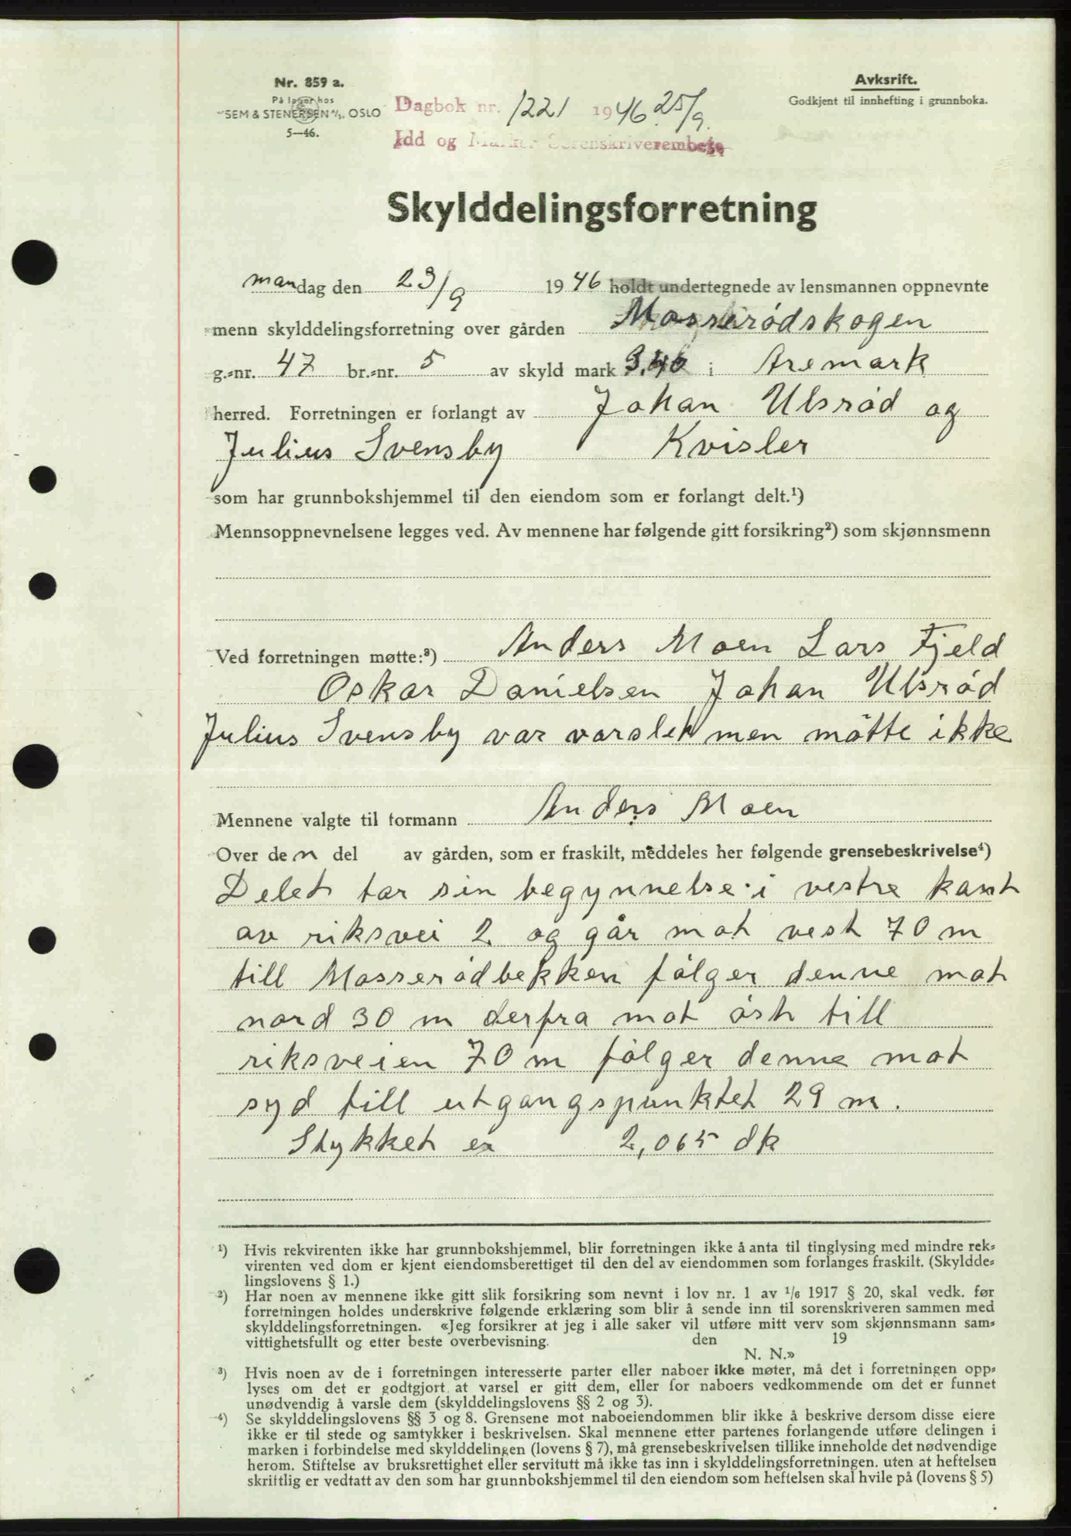 Nr. 859 a.
På lager hos
SEM & STENERSEN A/S. OSLO
5—46.
Dagbok nr. 1221 1946 25/9.
Idd og Marker Sorenskriverembete
Avksrift.
Godkjent til innhefting i grunnboka.
Skylddelingsforretning
mandag den 23/9 1946 holdt undertegnede av lensmannen oppnevnte
menn skylddelingsforretning over gården Mosserødskogen
g.-nr. 47 br.-nr. 5 av skyld mark 3.46 i Aremark
herred. Forretningen er forlangt av Johan Ulsrød og
Julius Svensby Kvisler
som har grunnbokshjemmel til den eiendom som er forlangt delt.¹)
Mennsoppnevnelsene legges ved. Av mennene har følgende gitt forsikring²) som skjønnsmenn
Ved forretningen møtte:³) Anders Moen Lars Fjeld
Oskar Danielsen Johan Ulsrød
Julius Svensby var varslet men møtte ikke
Mennene valgte til formann Anders Moen
Over den del av gården, som er fraskilt, meddeles her følgende grensebeskrivelse⁴)
Delet tar sin begynnelse i vestre kant
av riksvei 2 og går mot vest 70 m
till Mosserødbekken følger denne mot
nord 30 m derfra mot øst till
riksveien 70 m følger denne mot
syd till utgangspunktet 29 m.
Stykket er 2,065 dk
¹) Hvis rekvirenten ikke har grunnbokshjemmel, blir forretningen ikke å anta til tinglysing med mindre rek-
virenten ved dom er kjent eiendomsberettiget til den del av eiendommen som forlanges fraskilt. (Skyldde-
lingslovens § 1.)
²) Har noen av mennene ikke gitt slik forsikring som nevnt i lov nr. 1 av 1/6 1917 § 20, skal vedk. før
forretningen holdes underskrive følgende erklæring som blir å sende inn til sorenskriveren sammen med
skylddelingsforretningen. «Jeg forsikrer at jeg i alle saker vil utføre mitt verv som skjønnsmann sam-
vittighetsfullt og etter beste overbevisning. den 19
N. N.»
³) Hvis noen av de i forretningen interesserte parter eller naboer ikke møter, må det i forretningen opp-
lyses om det er godtgjort at varsel er gitt dem, eller for naboers vedkommende om det er funnet
unødvendig å varsle dem (skylddelingslovens §§ 2 og 3).
⁴) Se skylddelingslovens §§ 3 og 8. Grensene mot naboeiendommen blir ikke å beskrive dersom disse eiere
ikke er til stede og samtykker i beskrivelsen. Skal mennene etter partenes forlangende utføre delingen i
marken i forbindelse med skylddelingen (lovens § 7), må grensebeskrivelsen tillike inneholde det nødvendige
herom. Stiftelse av bruksrettighet eller servitutt må ikke tas inn i skylddelingsforretningen, uten at heftelsen
skriftlig er vedtatt av den som har grunnbokshjemmel til den eiendom som heftelsen skal hvile på (lovens § 5)